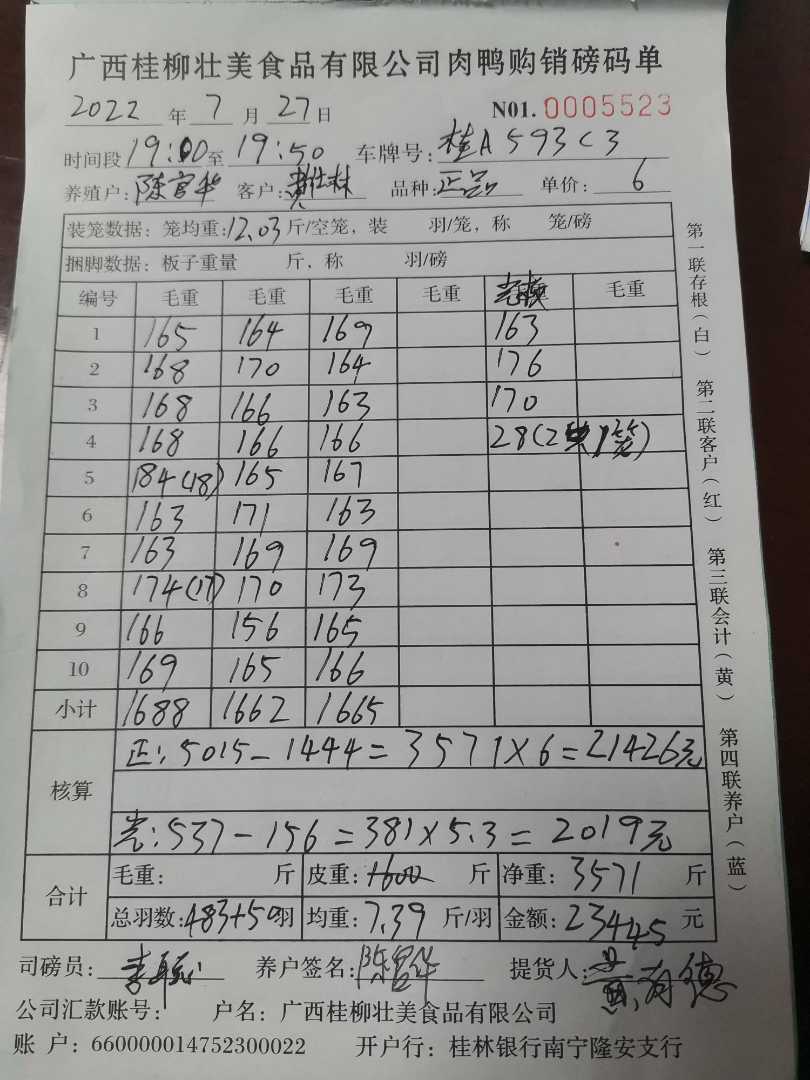 广西桂柳壮美食品有限公司肉鸭购销磅码单
2022 年 7 月 27 日 N01. 0005523
时间段 19:00 至 19:50 车牌号: 桂A593C3
养殖户: 陈官华 客户: 黄仕林 品种: 正品 单价: 6
装笼数据: 笼均重: 12.03 斤/空笼, 装 羽/笼, 称 笼/磅
捆脚数据: 板子重量 斤, 称 羽/磅
编号 毛重 毛重 毛重 毛重 毛重
1 165 164 169 163
2 168 170 164 176
3 168 166 163 170
4 168 166 166 28(2 1笼)
5 184(18) 165 167
6 163 171 163
7 163 169 169
8 174(17) 170 173
9 166 156 165
10 169 165 166
小计 1688 1662 1665
核算
正: 5015-1444=3571×6=21426元
光: 537-156=381×5.3=2019元
合计
毛重: 斤 皮重: 1600 斤 净重: 3571 斤
总羽数: 483+50羽 均重: 7.39 斤/羽 金额: 23445 元
司磅员: 李 养户签名: 陈官华 提货人: 黄有德
公司汇款账号: 户名: 广西桂柳壮美食品有限公司
账 户: 660000014752300022 开户行: 桂林银行南宁隆安支行
第一联存根(白) 第二联客户(红) 第三联会计(黄) 第四联养户(蓝)